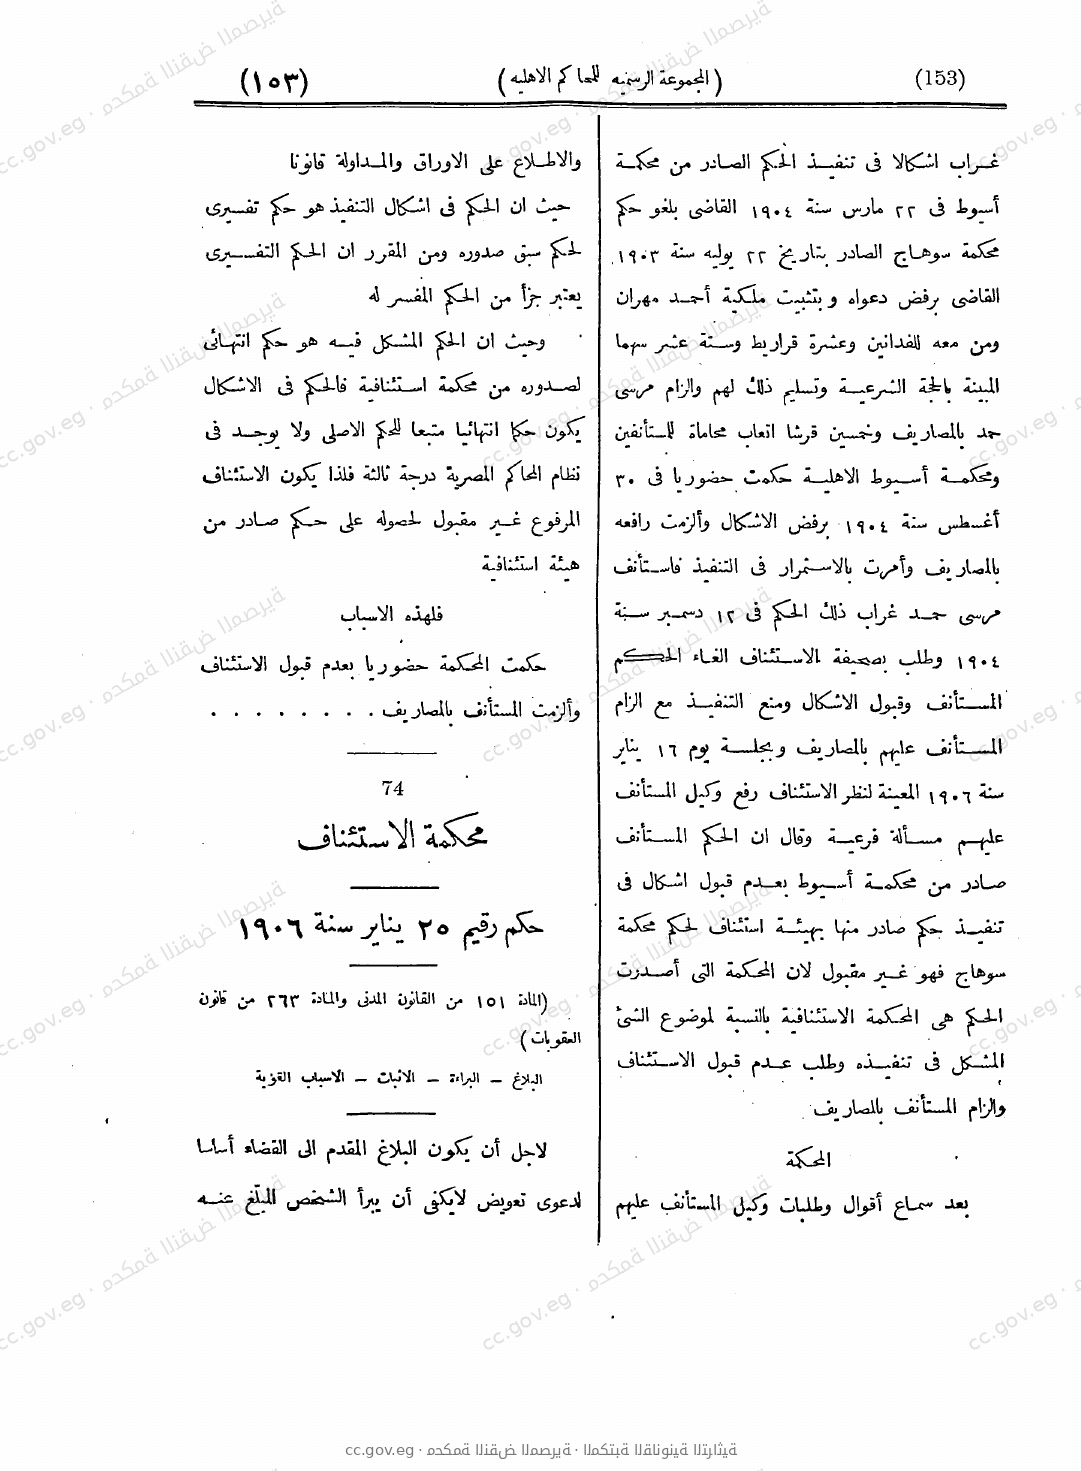 (153)
(المجموعة الرسميه للمحاكم الاهليه)
(١٥٣)
غراب اشكالا فى تنفيذ الحكم الصادر من محكمة
أسيوط فى ٢٢ مارس سنة ١٩٠٤ القاضى بلغو حكم
محكمة سوهاج الصادر بتاريخ ٢٢ يوليه سنة ١٩٠٣
القاضى برفض دعواه وبتثبيت ملكية أحمد مهران
ومن معه للفدانين وعشرة قراريط وستة عشر سهما
المبينة بالحجة الشرعية وتسليم ذلك لهم والزام مرسى
حمد بالمصاريف وخمسين قرشا اتعاب محاماة للمستأنفين
ومحكمة أسيوط الاهلية حكمت حضوريا فى ٣٠
أغسطس سنة ١٩٠٤ برفض الاشكال وألزمت رافعه
بالمصاريف وأمرت بالاستمرار فى التنفيذ فاستأنف
مرسى حمد غراب ذلك الحكم فى ١٢ دسمبر سنة
١٩٠٤ وطلب بصحيفة الاستئناف الغاء الحكم
المستأنف وقبول الاشكال ومنع التنفيذ مع الزام
المستأنف عليهم بالمصاريف وبجلسة يوم ١٦ يناير
سنة ١٩٠٦ المعينة لنظر الاستئناف رفع وكيل المستأنف
عليهم مسألة فرعية وقال ان الحكم المستأنف
صادر من محكمة أسيوط بعدم قبول اشكال فى
تنفيذ حكم صادر منها بهيئة استئناف لحكم محكمة
سوهاج فهو غير مقبول لان المحكمة التى أصدرت
الحكم هى المحكمة الاستئنافية بالنسبة لموضوع الشئ
المشكل فى تنفيذه وطلب عدم قبول الاستئناف
والزام المستأنف بالمصاريف
المحكمة
بعد سماع أقوال وطلبات وكيل المستأنف عليهم
والاطلاع على الاوراق والمداولة قانونا
حيث ان الحكم فى اشكال التنفيذ هو حكم تفسيرى
لحكم سبق صدوره ومن المقرر ان الحكم التفسيرى
يعتبر جزأ من الحكم المفسر له
وحيث ان الحكم المشكل فيه هو حكم انتهائى
لصدوره من محكمة استئنافية فالحكم فى الاشكال
يكون حكما انتهائيا متبعا للحكم الاصلى ولا يوجد فى
نظام المحاكم المصرية درجة ثالثة فلذا يكون الاستئناف
المرفوع غير مقبول لحصوله على حكم صادر من
هيئة استئنافية
فلهذه الاسباب
حكمت المحكمة حضوريا بعدم قبول الاستئناف
وألزمت المستأنف بالمصاريف . . . . . . . .
74
محكمة الاستئناف
حكم رقيم ٢٥ يناير سنة ١٩٠٦
(المادة ١٥١ من القانون المدنى والمادة ٢٦٣ من قانون
العقوبات)
البلاغ – البراءة – الاثبات – الاسباب القوية
لاجل أن يكون البلاغ المقدم الى القضاء أساسا
لدعوى تعويض لايكفى أن يبرأ الشخص المبلَّغ عنه
cc.gov.eg · محكمة النقض المصرية · المكتبة القانونية التراثية